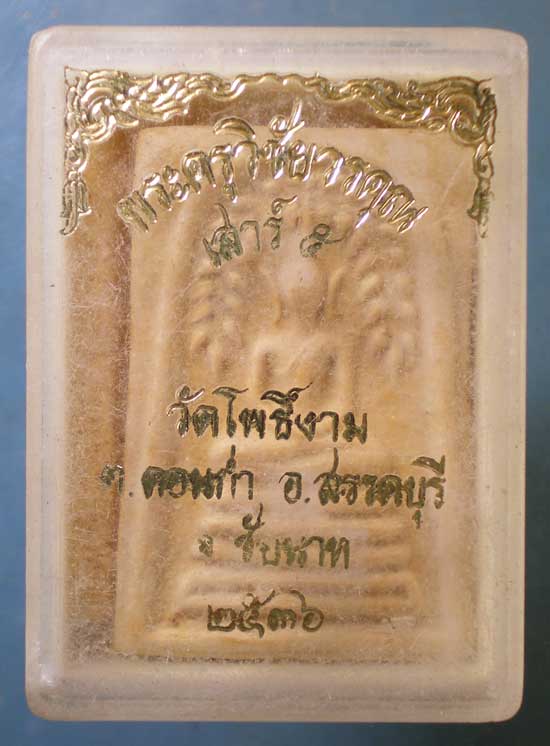 พระครูวิชัยวรคุณ
เสาร์ ๕
วัดโพธิ์งาม
ต.ดอนกำ อ.สรรคบุรี
จ ชัยนาท
๒๕๓๖